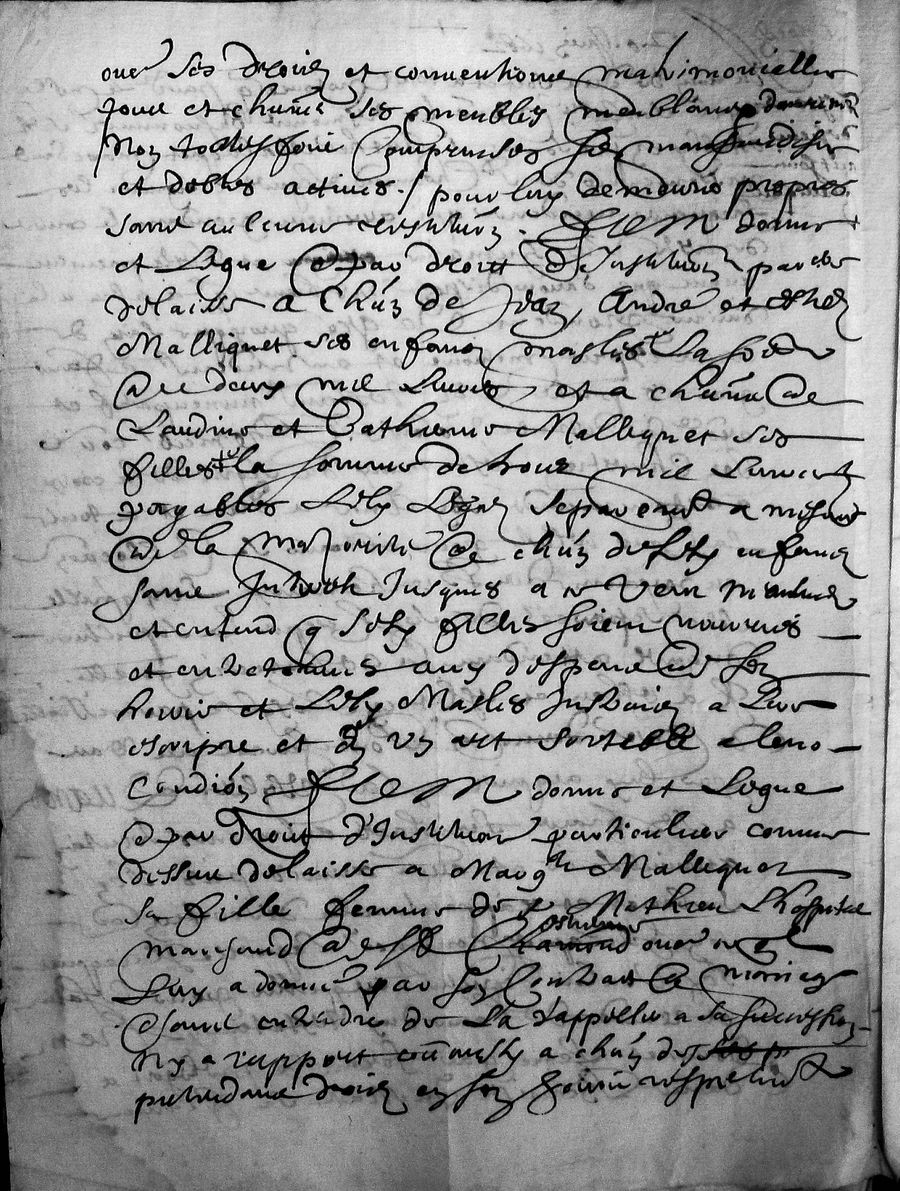 outre ses droitz et conventions matrimonielles
tous et chuns ses meubles meublans
non toutesfois comprinses ses marchandises
et debtes actives. / pour luy demeurer propres
sans aulcune restution. Item donne
et Legue et par droitt d'Institution par elle
delaisse a chun de Jean, André et
Malliquet ses enfans masles la so͞e
de deux mil Livres et a chune de
Claudine et Catherine Mallequet ses
filles la somme de trois mil Livres
payables Lesdz Legatz separemt a mesure
de la majorité de chun desdz enfans
sans Interestz Jusques a
et entend q sesdz filles soient nourries
et entretenues aux despens de ses
hoirs et Lesdz Masles Instruitz a Lire
escripre et en un art sortable a leur
Condion Item donne et Legue
et par droit d'Institution particuliere comme
dessus delaisse a Margte Mallequet
sa fille femme de sr Mathieu Lhospital
marchand de St outre ce q
Luy a donné par son contract de mariage
sans entendre de La rappeller a sa succession
ny a rapport comme aussy a chun des
pretendans droitz en son hoirie respectivt